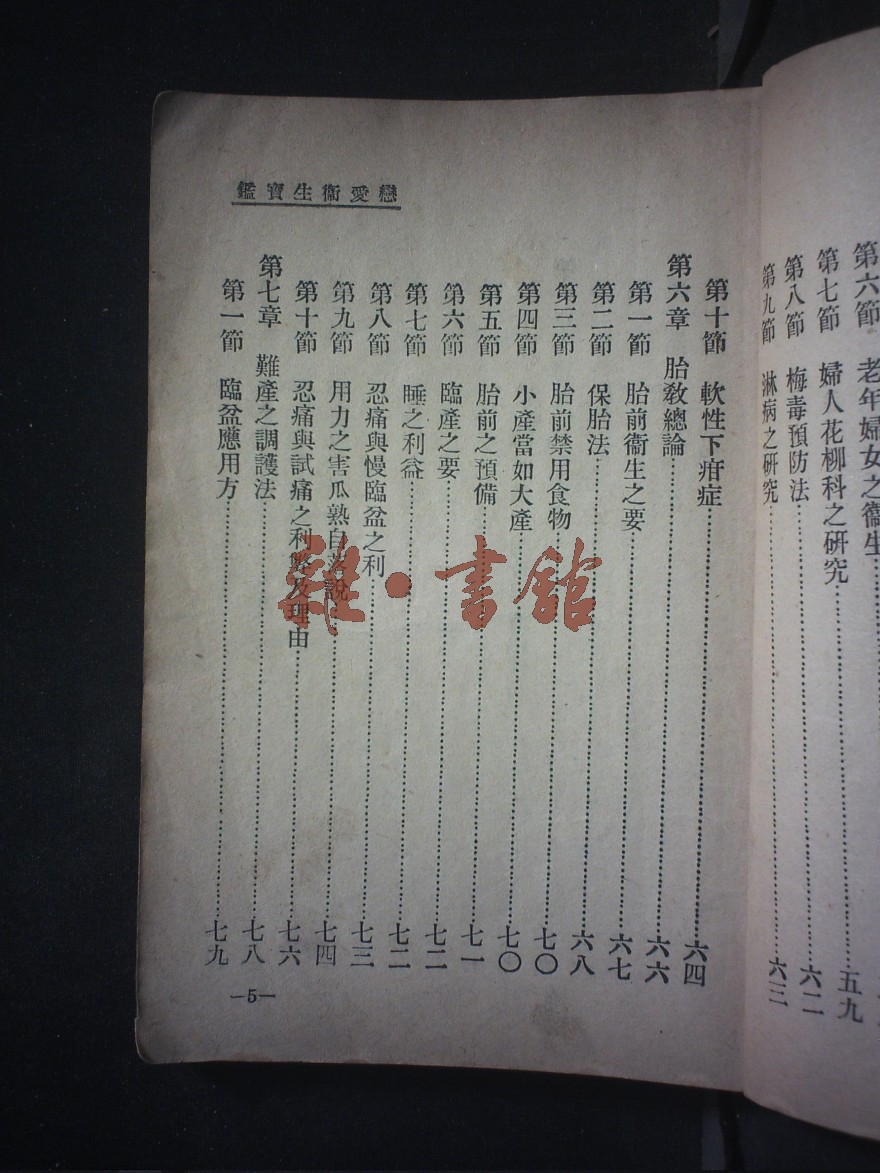 第六節　老年婦女之衞生……五九
第七節　婦人花柳科之硏究……
第八節　梅毒預防法……六二
第九節　淋病之硏究……六三
戀愛衞生寶鑑
第十節　軟性下疳症……六四
第六章　胎敎總論……六六
第一節　胎前衞生之要……六七
第二節　保胎法……六八
第三節　胎前禁用食物……七〇
第四節　小產當如大產……七〇
第五節　胎前之預備……七一
第六節　臨產之要……七二
第七節　睡之利益……七二
第八節　忍痛與慢臨盆之利……七三
第九節　用力之害瓜熟自落說……七四
第十節　忍痛與試痛之利弊及理由……七六
第七章　難產之調護法……七八
第一節　臨盆應用方……七九
—5—
雜·書館